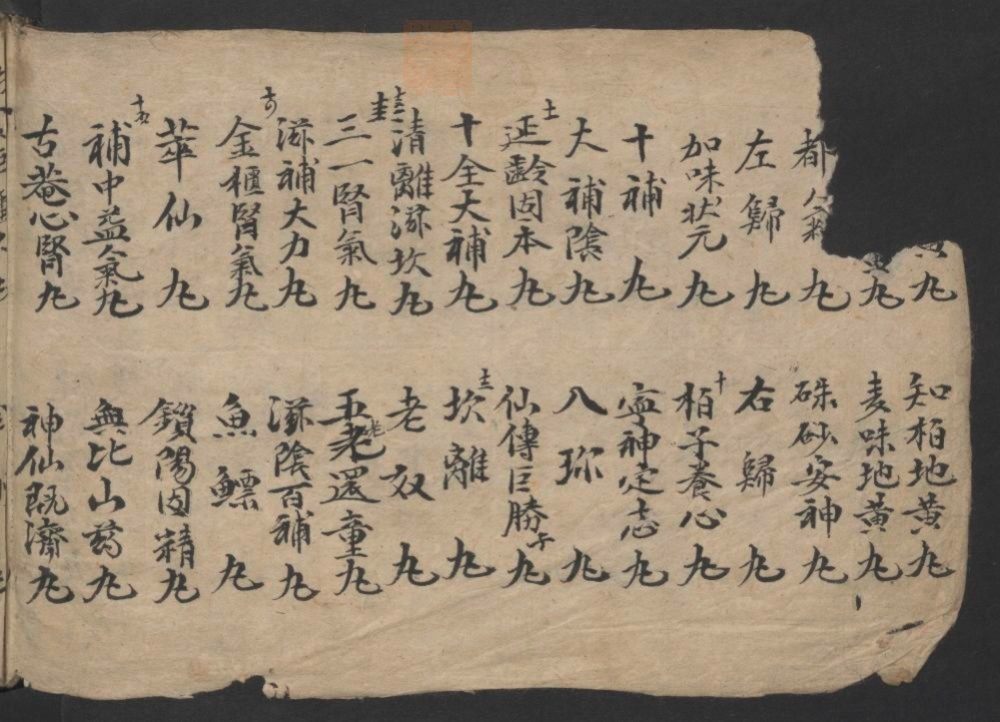 黃丸
黃丸
都氣丸
左歸丸
加味狀元丸
十補丸
大補陰丸
十一
延齡固本丸
十全大補丸
清離滋坎丸
三一腎氣丸
滋補大力丸
金櫃腎氣丸
萃仙丸
補中益氣丸
古菴心腎丸
知柏地黃丸
麦味地黃丸
硃砂安神丸
右歸丸
十
栢子養心丸
寧神定志丸
八珎丸
仙傳巨勝子丸
十二
坎離丸
老奴丸
五老還童丸
滋陰百補丸
魚鰾丸
鎖陽固精丸
無比山葯丸
神仙既濟丸